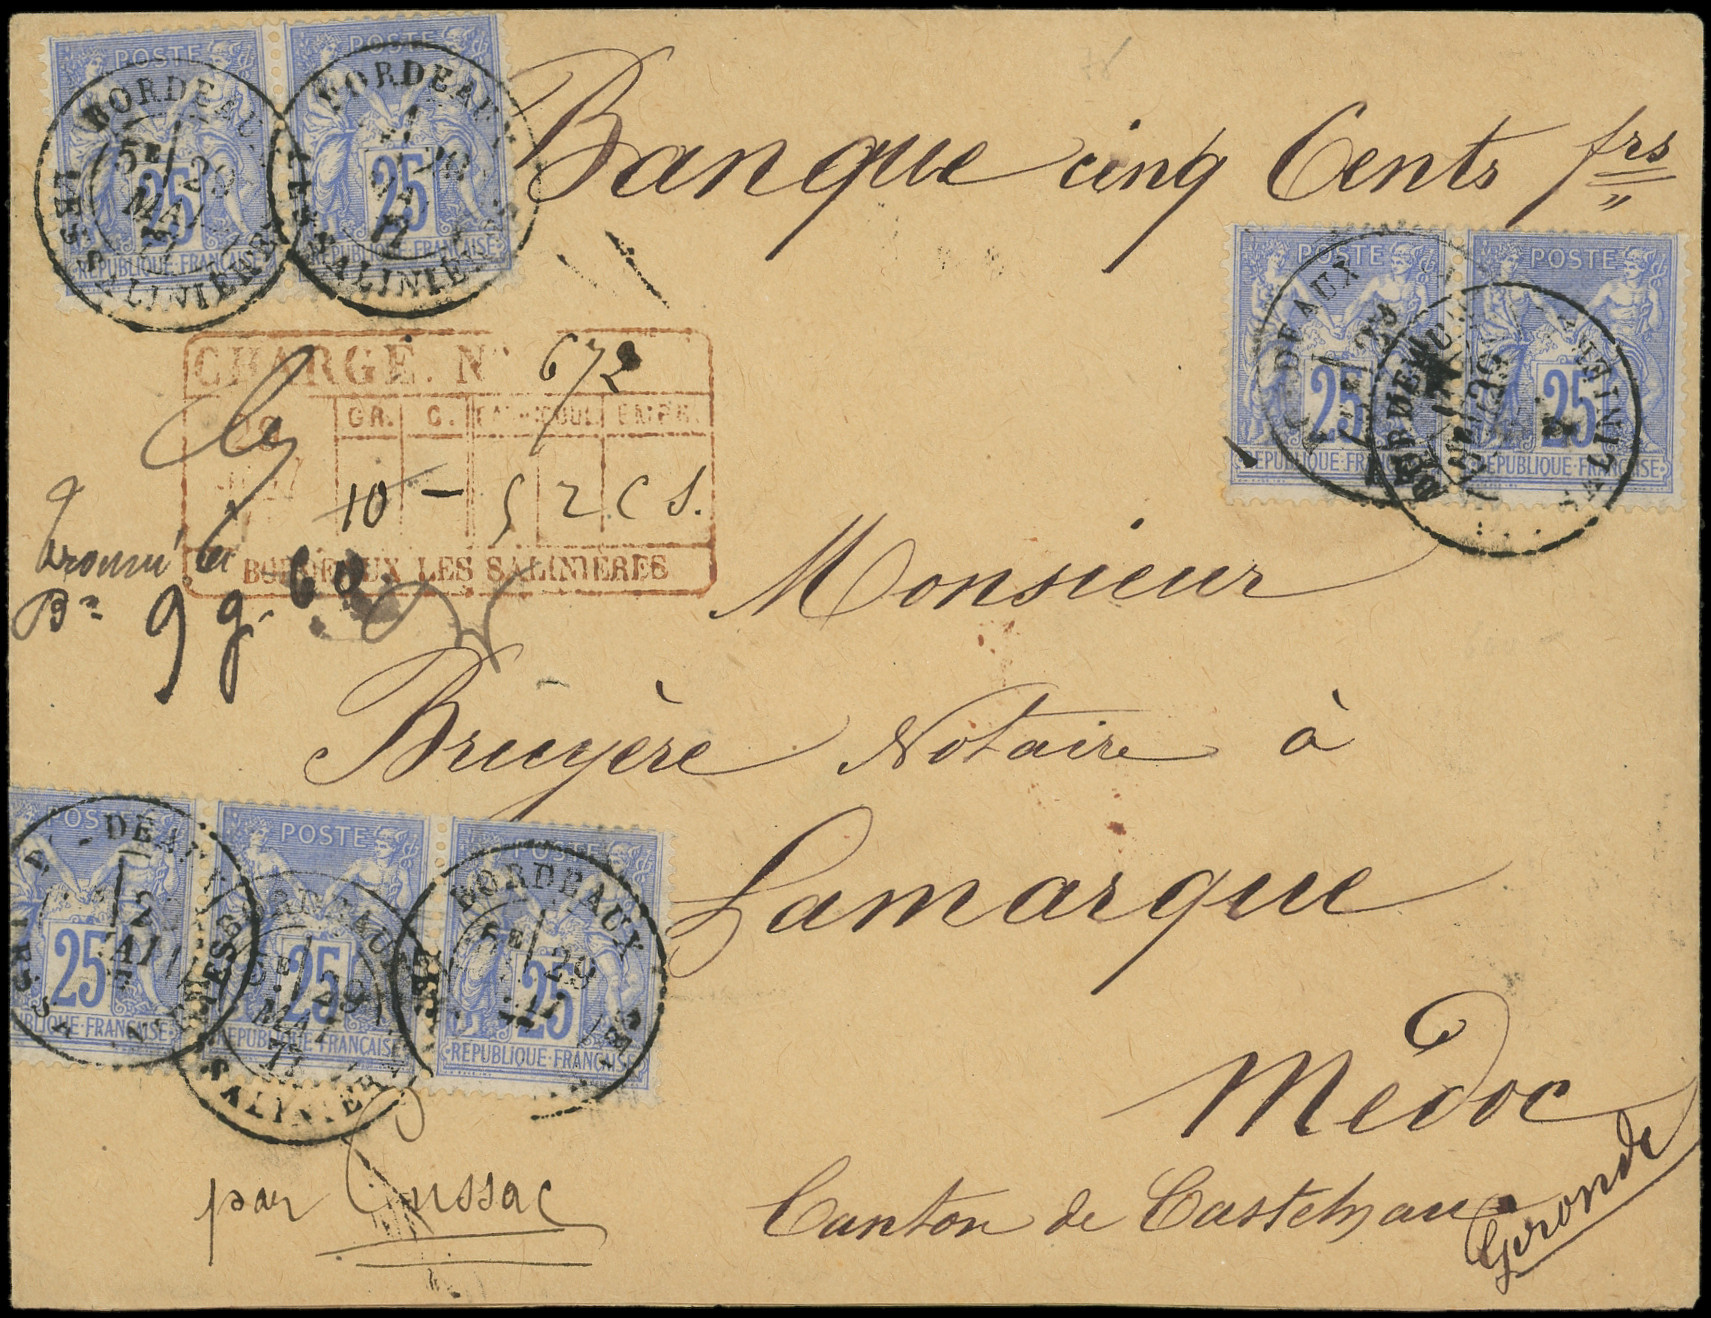 POSTE POSTE
BORDEAUX BORDEAUX
5E 29 MAI
25 25
REPUBLIQUE FRANÇAISE REPUBLIQUE FRANÇAISE
LES SALINIERES LES SALINIERES
Banque cinq Cents frs
POSTE POSTE
25 25
REPUBLIQUE FRANÇAISE REPUBLIQUE FRANÇAISE
CHARGÉ. N° 672
GR. C.
10 - 5 2 C S.
BORDEAUX LES SALINIERES
Bx 9 g. 60
Monsieur
Bruyère Notaire à
Lamarque
Médoc
Canton de Castelnau
Gironde
POSTE POSTE POSTE
BORDEAUX BORDEAUX BORDEAUX
5E 29 MAI 77
25 25 25
REPUBLIQUE FRANÇAISE REPUBLIQUE FRANÇAISE REPUBLIQUE FRANÇAISE
LES SALINIERES
par Cussac